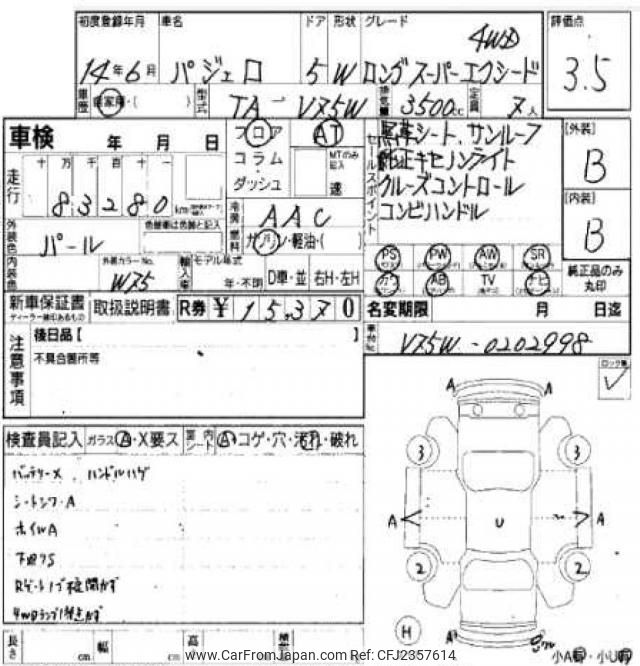 初度登録年月 車名 ドア 形状 グレード 評価点
4WD
14年6月 パジェロ 5 W ロングスーパーエクシード 3.5
車歴 自家用・( ) 型式 TA-V75W 排気量 3500cc 定員 7人
車検 年 月 日 フロア AT セールスポイント 黒革シート、サンルーフ [外装]
コラム・ MTのみ記入 純正キセノンライト B
走行 十 万 千 百 十 一 ダッシュ 速 クルーズコントロール
83280 km 冷房 AAC コンビハンドル [内装]
外装色 パール 色替車は色替と記入 燃料 ガソリン・軽油・( ) B
PS PW AW SR
内装色 外装カラーNo. W75 輸入車 モデル年式 年・不明 D車・並 右H・左H ガワ AB TV ナビ 純正品のみ丸印
新車保証書 取扱説明書 R券 ¥ 15,370 名変期限 月 日迄
ディーラー捺印あるもの
注意事項 後日品【 】 車台No. V75W-0202998
不具合箇所等 ロック無
検査員記入 ガラス A・X要ス 室内シート A・コゲ・穴・汚れ・破れ
バッテリーX ハンドルハゲ
シートシワ・A
ホイルA
下回りS
A
3 3
A U A
2 2
H A
長さ cm 幅 cm 高さ 小A有・小U有
www.CarFromJapan.com Ref: CFJ2357614